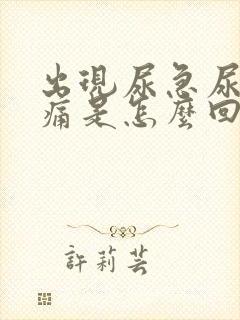 出現尿急尿
痛是怎麼回
許莉芸